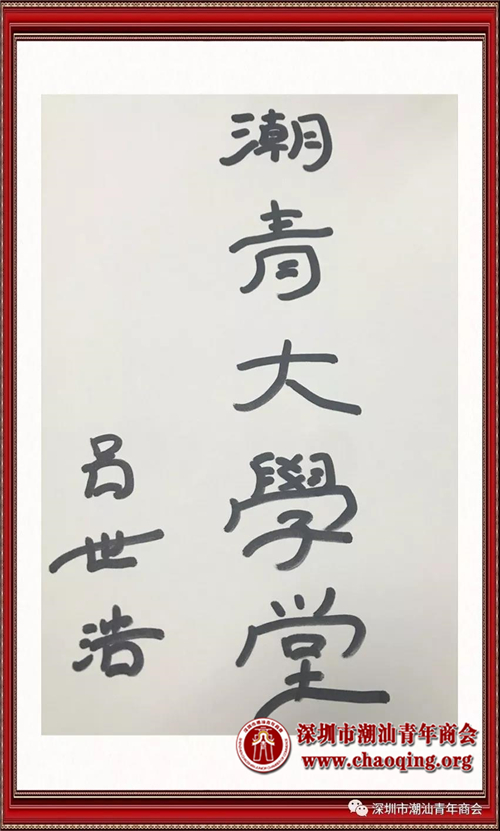 潮青大學堂
吕世浩
深圳市潮汕青年商会
www.chaoqing.org
深圳市潮汕青年商会